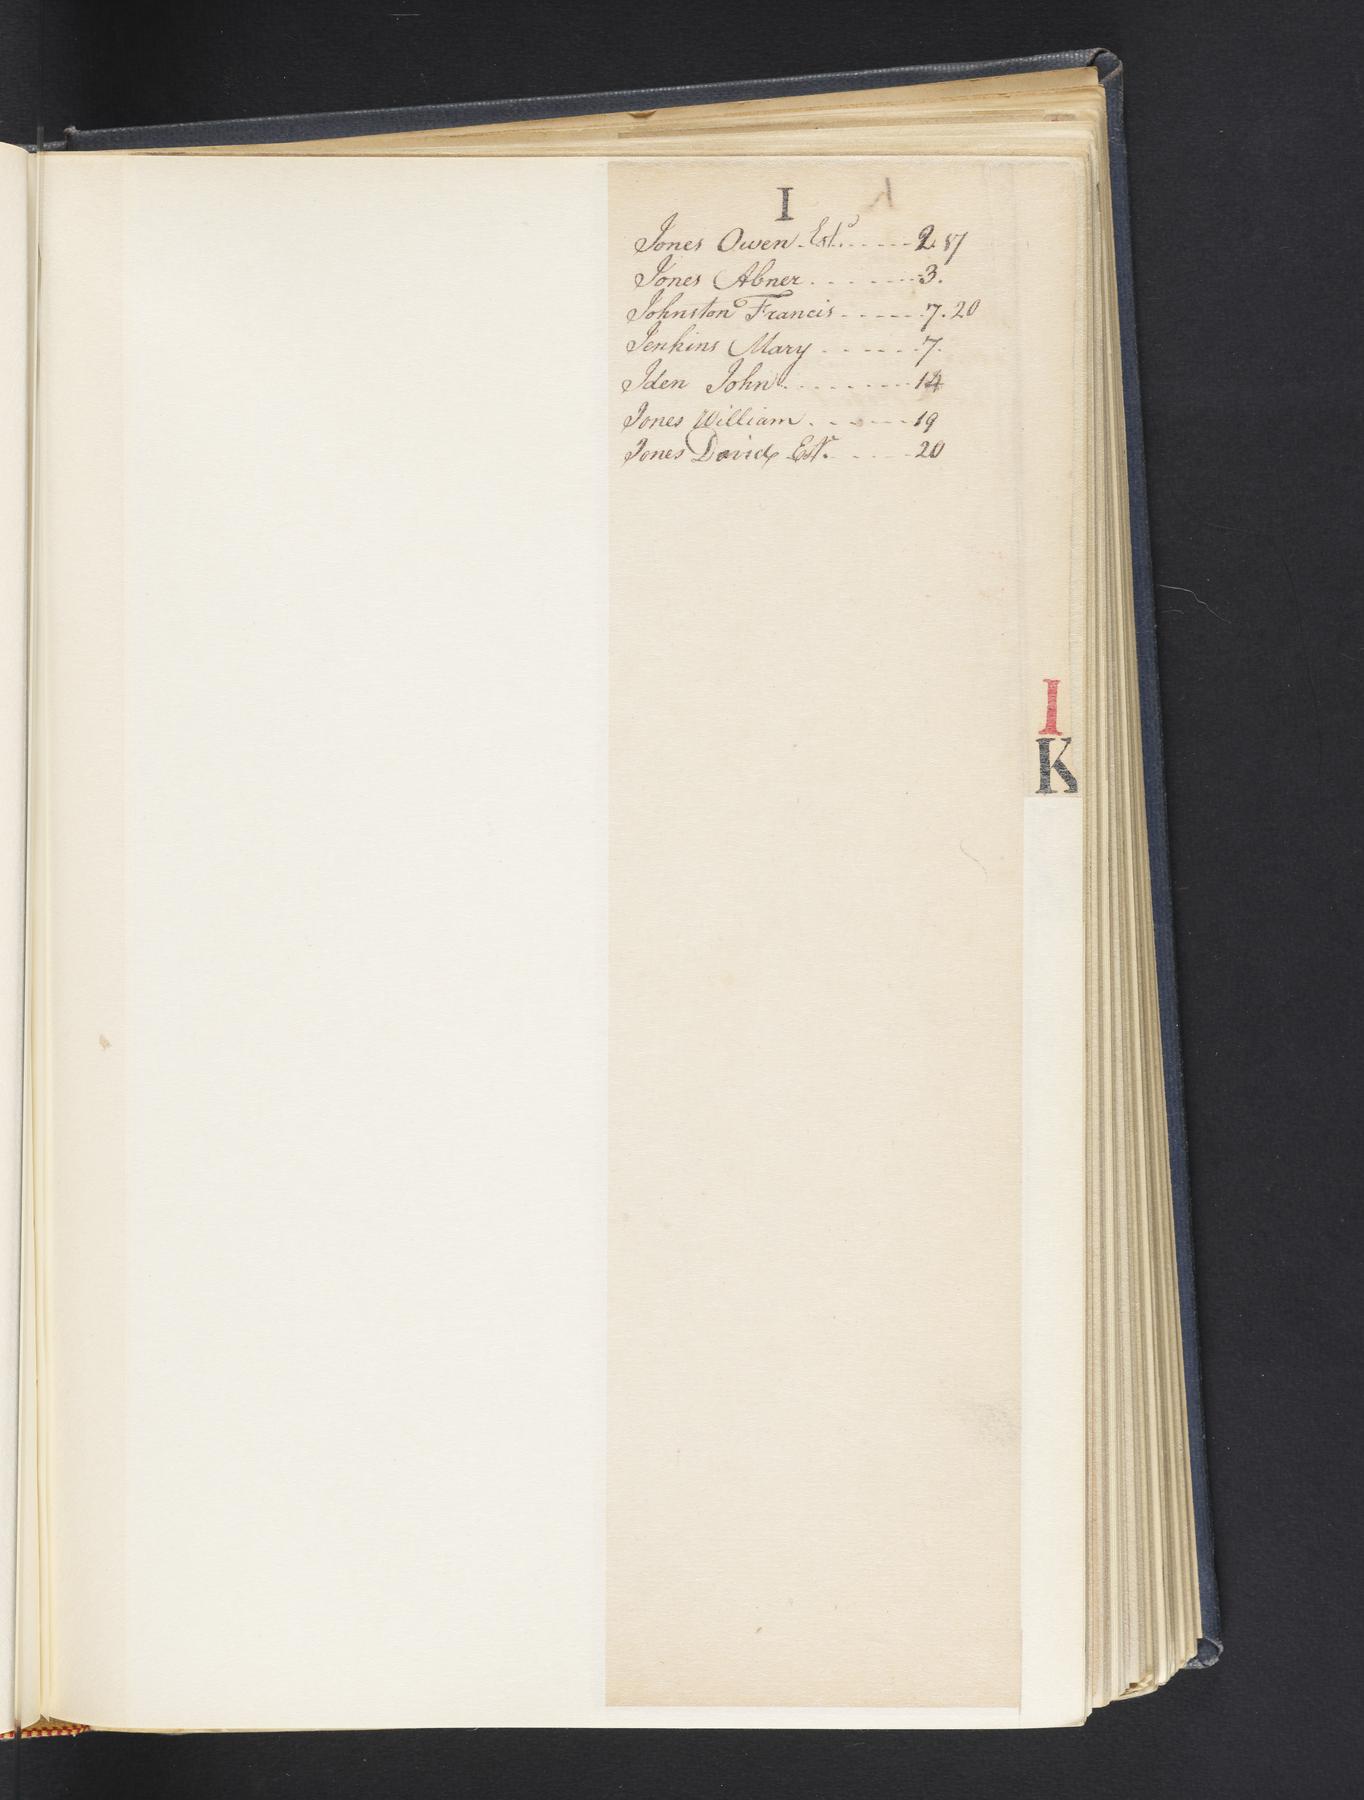 I
Jones Owen Est.r 2. 87
Jones Abner 3.
Johnston Francis 7. 20
Jenkins Mary 7.
Iden John 14
Jones William 19
Jones David Est.r 20
I
K